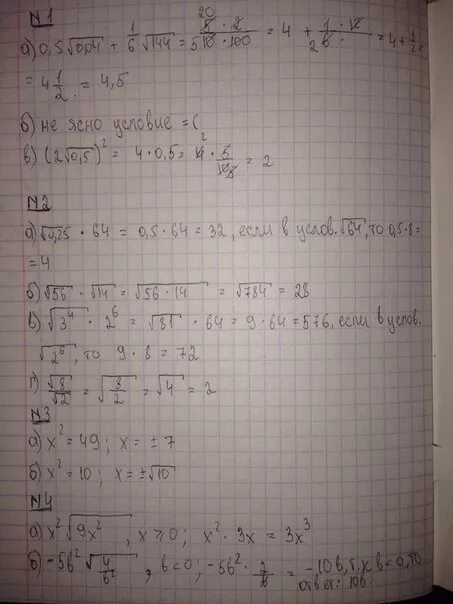 N1
а) 0,5√0,04 + 1/6 √144 = 5/10 · 2/100 = 4 + 1/6 · 12 = 4 + 1/2 =
= 4 1/2 = 4,5
б) не ясно условие =(
в) (2√0,5)² = 4·0,5 = 4 · 5/10 = 2
N2
а) √0,25 · 64 = 0,5 · 64 = 32, если в услов. √64, то 0,5·8=
= 4
б) √56 · √14 = √56·14 = √784 = 28
в) √3⁴ · 2⁶ = √81 · 64 = 9·64 = 576, если в услов.
√2⁶, то 9·8 = 72
г) √8/√2 = √8/2 = √4 = 2
N3
а) x² = 49; x = ±7
б) x² = 10; x = ±√10
N4
а) x²√9x², x ≥ 0; x² · 3x = 3x³
б) -5b²√4/b², b<0; -5b² · 2/b = -10b, т.к b<0, то
ответ: 10b.